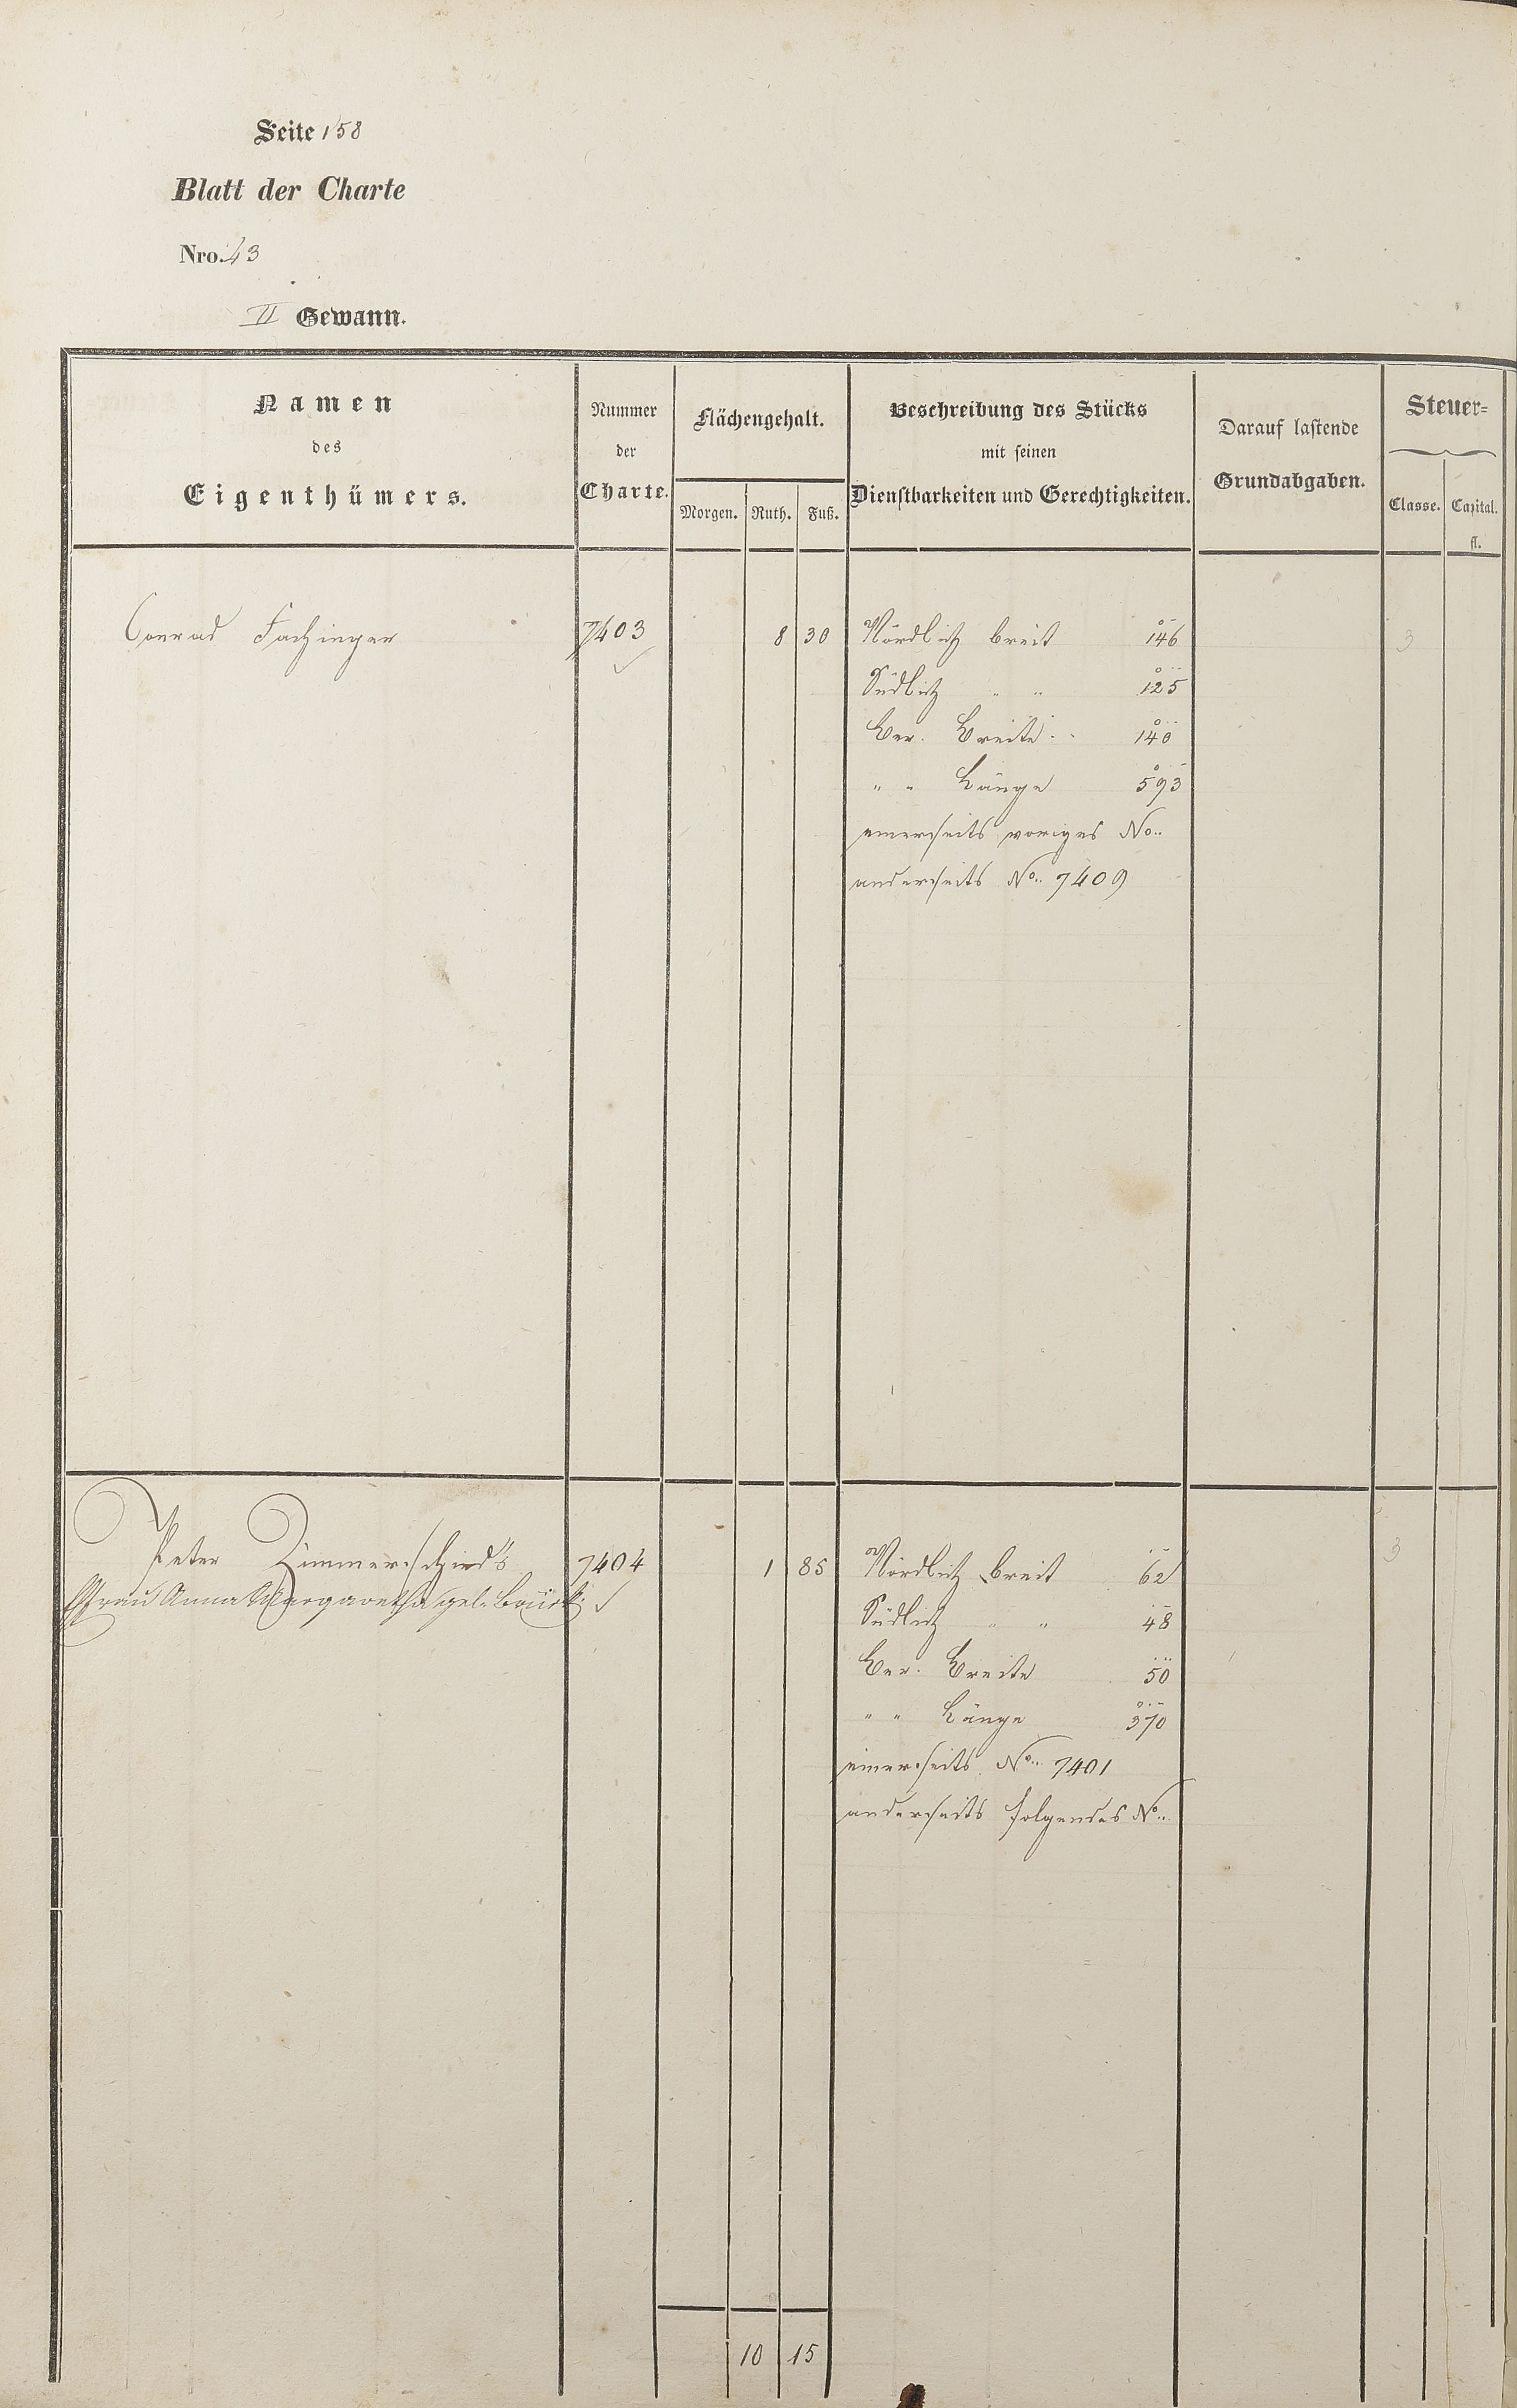 Seite 158
Blatt der Charte
Nro. 43
II Gewann.
Namen
des
Eigenthümers.
Nummer
der
Charte.
Flächengehalt.
Morgen. Ruth. Fuß.
Beschreibung des Stücks
mit seinen
Dienstbarkeiten und Gerechtigkeiten.
Darauf lastende
Grundabgaben.
Steuer=
Classe. Capital.
fl.
Conrad Fachinger 7403 8 30 Nördlich breit 146 3
Südlich " " 125
Ber. Breite 140
" " Länge 593
einerseits voriges No.
anderseits No. 7409
Peter Zimmerschied's 7404 1 85 Nördlich breit 62 3
Frau Anna Margaretha geb.
Südlich " " 48
Ber. Breite 50
" " Länge 370
einerseits No. 7401
anderseits folgendes No.
10 15